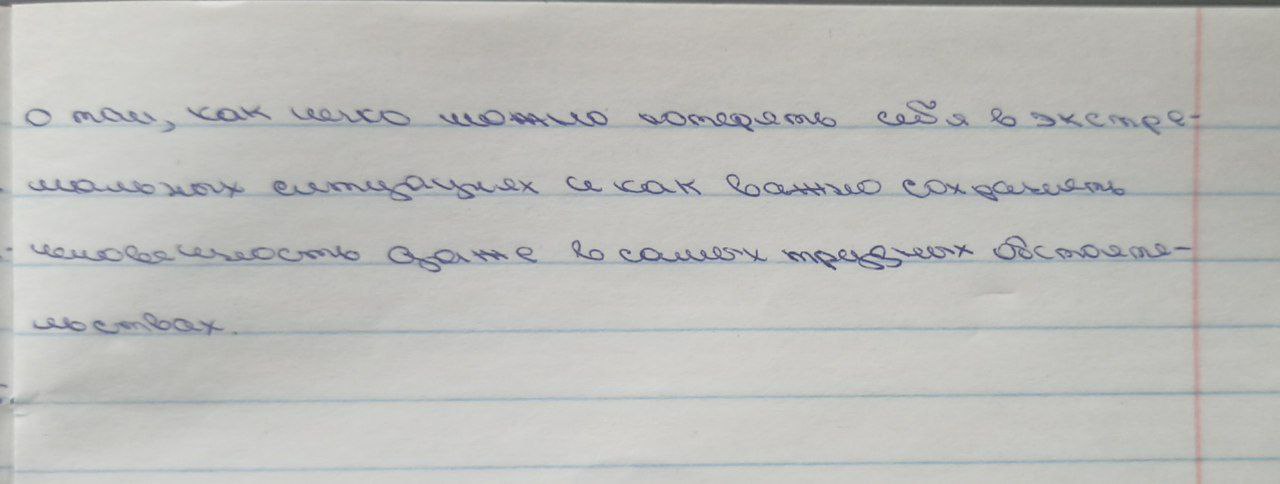 о том, как легко можно потерять себя в экстре-
мальных ситуациях и как важно сохранять
человечность даже в самых трудных обстояте-
льствах.